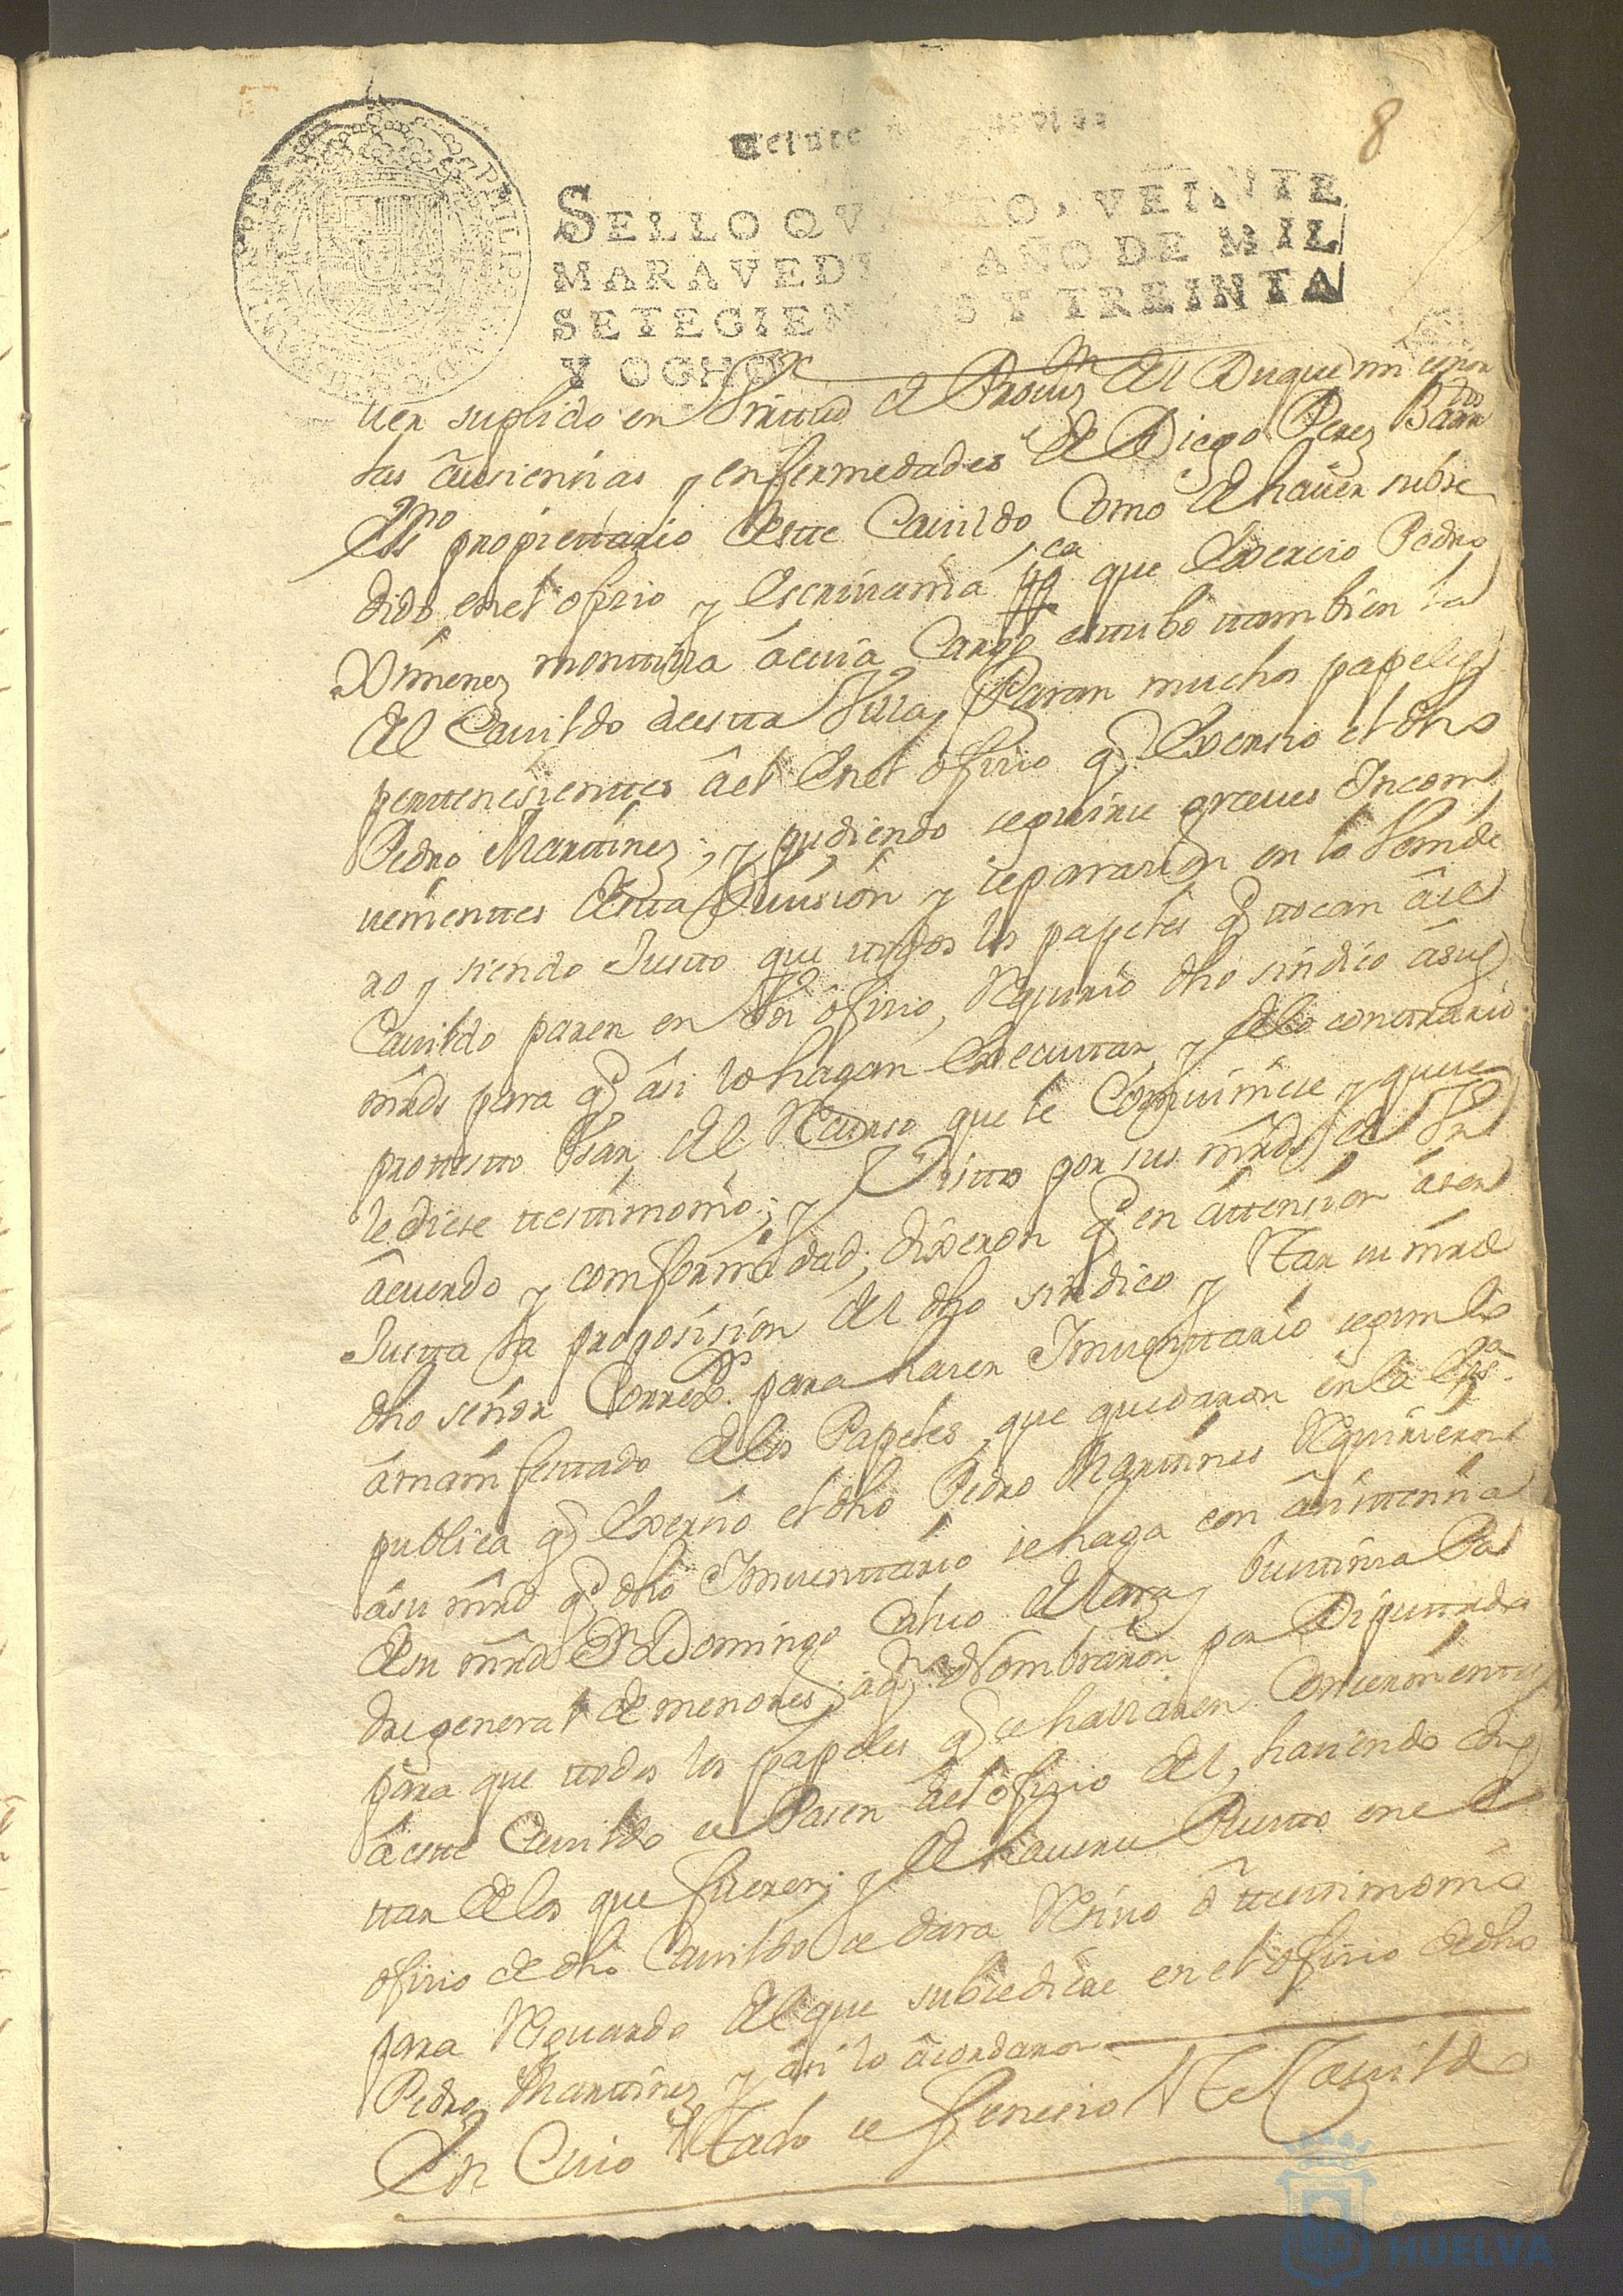 8
Veinte maravedis
SELLO QVARTO, VEINTE
MARAVEDIS, AÑO DE MIL
SETECIENTOS Y TREINTA
Y OCHO.
uer suplido en Virtud de Prou.on del Duque mi señor
las aussiencias y enfermedades de Diego Perez Barr.do
Ess.no propietario deste Cauildo, Como de hauer subse
dido, en el ofizio y escriuania pp.ca que Exercio Pedro
Ximenez montilla a cuia Cargo estubo ttambien la
del Cauildo de esta Villa, Paran muchos papeles
perttenesienttes a el en el ofizio q.e Exersio el dho
Pedro Marttinez; y pudiendo seguirse graues Incom
uenienttes destta Diuision y separazion en lo Venide
ro y siendo Justto que ttodos los papeles q.e ttocan a este
Cauildo paren en su ofizio, Requirio dho sindico a sus
mrds para q.e asi lo hagan Executtar, y de lo conttrario
prottestto Vsar del Recurso que le Combiniese y que se
le diese ttesttimonio; y Vistto por sus mrds de Vn
acuerdo y comformidad, dixeron q.e en attension a ser
Justta la proposision del dho sindico y Estar su mrd
dho señor Correx.or para hacer Inuenttario segun lo
a manifesttado de los Papeles que quedaron en la Ess.a
publica q.e Exercio el dho Pedro Marttines Requirieron
a su mrd q.e dho Inuenttario se haga con asisttencia
de su mrd D.n Domingo Caluo de Lara y Buittrra Pa
dre general de menores, a q.n Nombraron por Diputtado
para que ttodos los papeles q.e se hallaren Concernienttes
a estte Cauildo se Pasen a el ofizio del, haciendo cons
ttar de los que fueren; y de hauerse Puestto en el
ofizio de dho Cauildo se dara Reciuo o ttesttimonio
para Resguardo del que subcediere en el ofizio de dho
Pedro Marttinez y asi lo acordaron
En Cuio Esttado se fenecio Este Cauildo
HUELVA